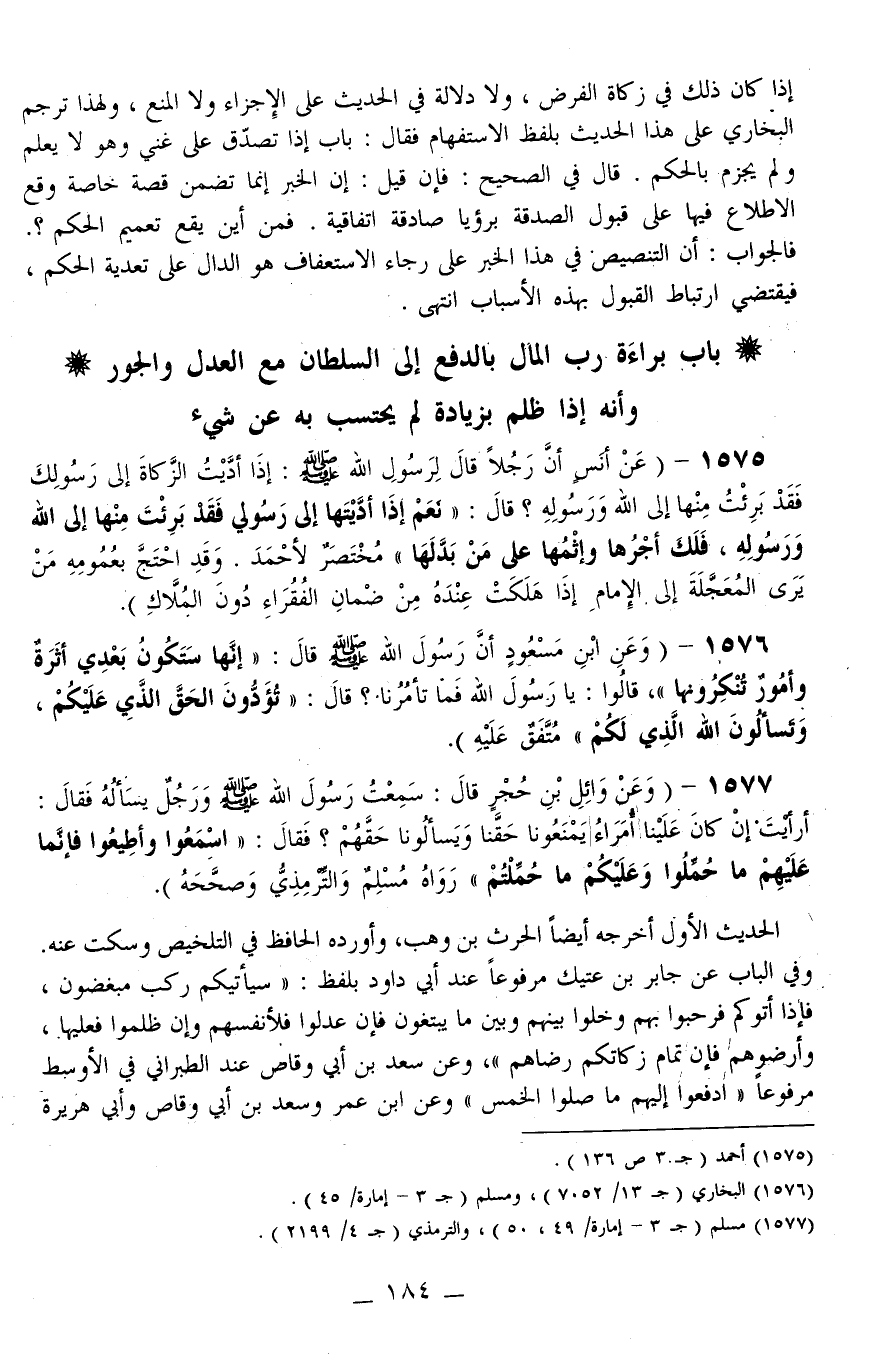 إذا كان ذلك في زكاة الفرض ، ولا دلالة في الحديث على الإجزاء ولا المنع ، ولهذا ترجم
البخاري على هذا الحديث بلفظ الاستفهام فقال : باب إذا تصدّق على غني وهو لا يعلم
ولم يجزم بالحكم . قال في الصحيح : فإن قيل : إن الخبر إنما تضمن قصة خاصة وقع
الاطلاع فيها على قبول الصدقة برؤيا صادقة اتفاقية . فمن أين يقع تعميم الحكم ؟.
فالجواب : أن التنصيص في هذا الخبر على رجاء الاستعفاف هو الدال على تعدية الحكم ،
فيقتضي ارتباط القبول بهذه الأسباب انتهى .
باب براءة رب المال بالدفع إلى السلطان مع العدل والجور
وأنه إذا ظلم بزيادة لم يحتسب به عن شيء
١٥٧٥ – ( عَنْ أنَسٍ أنَّ رَجُلاً قالَ لِرَسُولِ الله ﷺ : إذَا أدَّيْتُ الزَّكاةَ إلى رَسُولِكَ
فَقَدْ بَرِئْتُ مِنْها إلى الله وَرَسُولِهِ ؟ قالَ : « نَعَمْ إذَا أدَّيْتَها إلى رَسُولي فَقَدْ بَرِئْتَ مِنْها إلى الله
وَرَسُولِهِ ، فَلَكَ أجْرُها وإثْمُها على مَنْ بَدَّلَهَا » مُخْتَصَرٌ لأحْمَدَ . وَقَدِ احْتَجَّ بعُمُومِهِ مَنْ
يَرَى المُعَجَّلَةَ إلى الإمام إذَا هَلَكَتْ عِنْدَهُ مِنْ ضَمانِ الفُقَرَاءِ دُونَ المُلَّاكِ ).
١٥٧٦ – ( وَعَنِ ابْنِ مَسْعُودٍ أنَّ رَسُولَ الله ﷺ قالَ : « إنَّها سَتَكُونُ بَعْدِي أثَرَةٌ
وأمُورٌ تُنْكِرُونها »، قالُوا : يا رَسُولَ الله فَمَا تأمُرُنا ؟ قالَ : « تُؤَدُّونَ الحَقَّ الَّذِي عَلَيْكُمْ ،
وَتَسألُونَ الله الَّذِي لَكُمْ » مُتَّفَقٌ عَلَيْهِ ).
١٥٧٧ – ( وَعَنْ وَائِلِ بْنِ حُجْرٍ قالَ : سَمِعْتُ رَسُولَ الله ﷺ وَرَجُلٌ يسألُهُ فَقالَ :
أرأيْتَ إنْ كانَ عَلَيْنا أُمَرَاءُ يَمْنَعُونا حَقَّنا وَيَسألُونا حَقَّهُمْ ؟ فَقالَ : « اسْمَعُوا وأطِيعُوا فإنَّما
عَلَيْهِمْ ما حُمِّلُوا وَعَلَيْكُمْ ما حُمِّلْتُمْ » رَوَاهُ مُسْلِمٌ وَالتِّرْمِذِيُّ وَصحَّحَهُ ).
الحديث الأول أخرجه أيضاً الحرث بن وهب، وأورده الحافظ في التلخيص وسكت عنه.
وفي الباب عن جابر بن عتيك مرفوعاً عند أبي داود بلفظ : « سيأتيكم ركب مبغضون ،
فإذا أتوكم فرحبوا بهم وخلوا بينهم وبين ما يبتغون فإن عدلوا فلأنفسهم وإن ظلموا فعليها ،
وأرضوهم فإن تمام زكاتكم رضاهم »، وعن سعد بن أبي وقاص عند الطبراني في الأوسط
مرفوعاً « ادفعوا إليهم ما صلوا الخمس » وعن ابن عمر وسعد بن أبي وقاص وأبي هريرة
(١٥٧٥) أحمد ( جـ ٣ ص ١٣٦ ) .
(١٥٧٦) البخاري ( جـ ١٣/ ٧٠٥٢ ) ، ومسلم ( جـ ٣ – إمارة/ ٤٥ ) .
(١٥٧٧) مسلم ( جـ ٣ – إمارة/ ٤٩ ، ٥٠ ) ، والترمذي ( جـ ٤/ ٢١٩٩ ) .
— ١٨٤ —